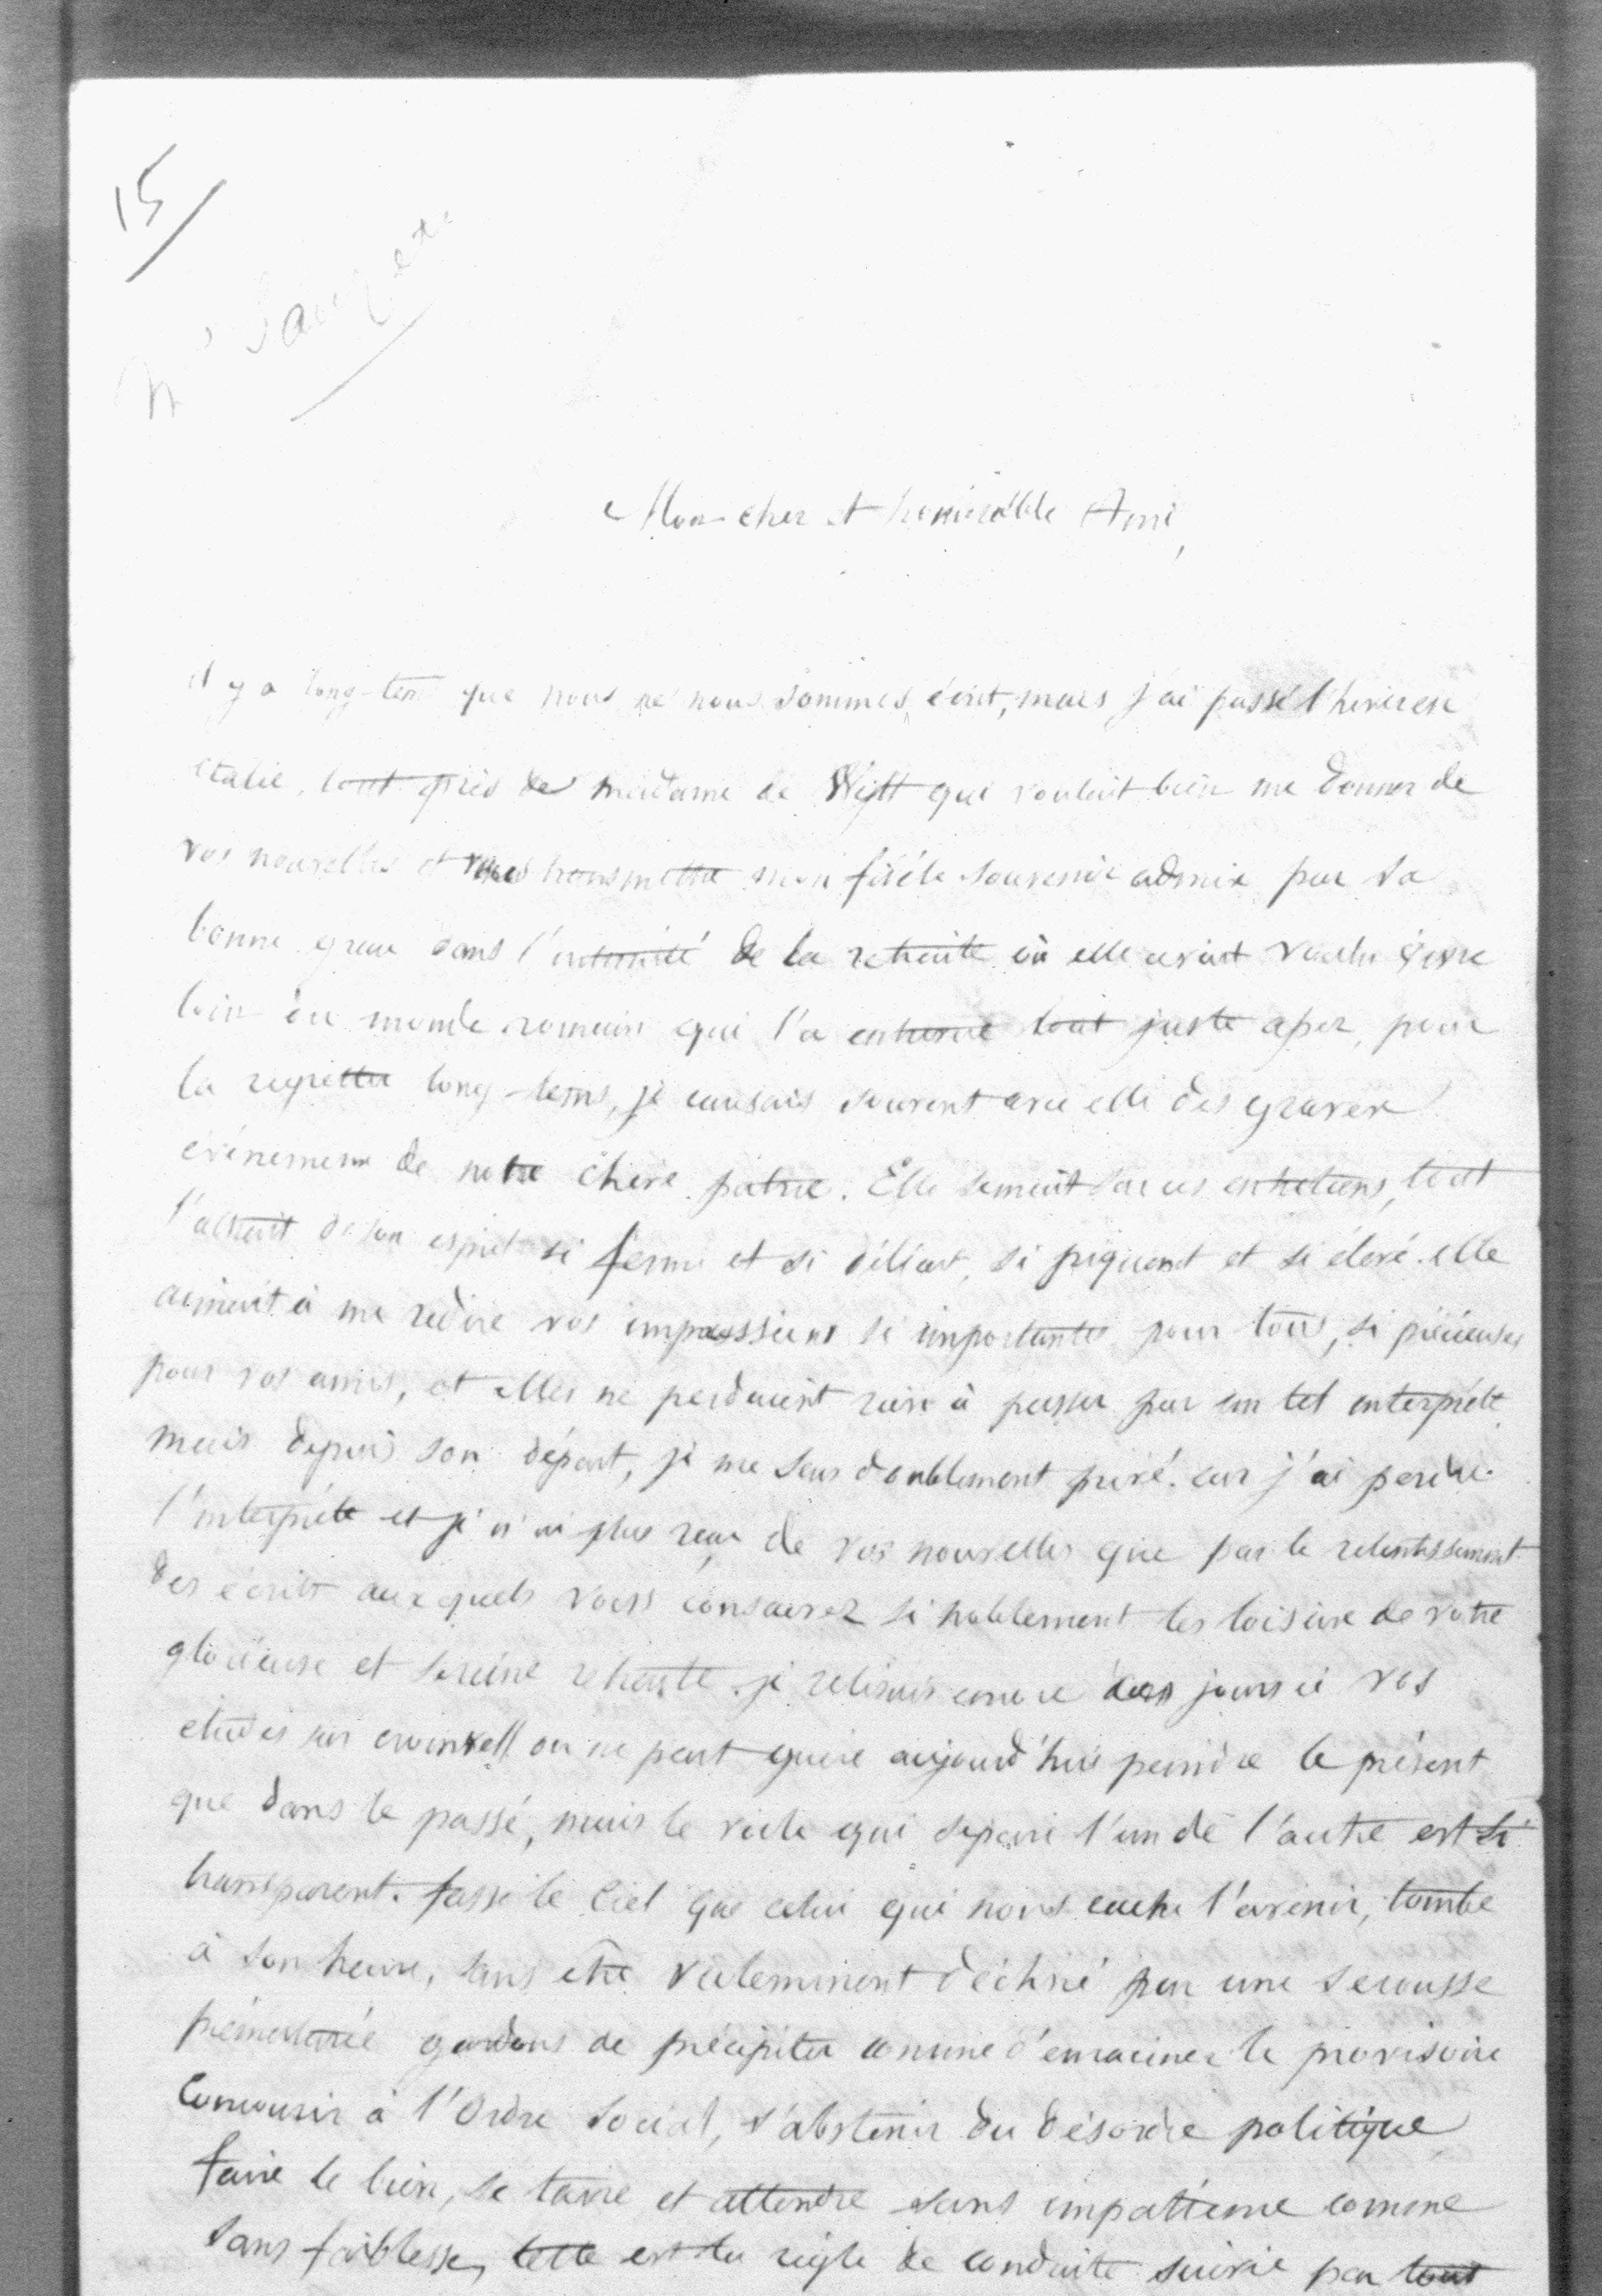 15
Mr Sauzet
Mon cher et honorable Ami,
il y a long-tems que nous ne nous sommes écrit, mais j'ai passé l'hiver en
italie, tout près de madame de Witt qui voulait bien me donner de
vos nouvelles et vous transmettre mon fidèle souvenir admis par sa
bonne grace dans l'intimité de la retraite où elle avait voulu vivre
loin du monde romain qui l'a entrevue tout juste assez, pour
la regretter long-tems, je causais souvent avec elle des graves
événemens de notre chère patrie. Elle semait sur ces entretiens, tout
l'attrait de son esprit si ferme et si délicat, si piquant et si élevé. elle
aimait à me redire vos impressions si importantes pour tous, si précieuses
pour vos amis, et elles ne perdaient rien à passer par un tel interprète
mais depuis son départ, je me sens doublement privé. car j'ai perdu
l'interprète et je n'ai plus reçu de vos nouvelles que par le retentissement
des écrits auxquels vous consacrez si noblement les loisirs de votre
glorieuse et sereine retraite. je relisais encore ces jours ci vos
études sur cromwell on ne peut guère aujourd'hui peindre le présent
que dans le passé, mais le voile qui sépare l'un de l'autre est si
transparent. fasse le Ciel que celui qui nous cache l'avenir, tombe
à son heure, sans être violemment déchiré par une secousse
prématurée gardons de précipiter comme d'enraciner le provisoire
Concourir à l'Ordre Social, s'abstenir du désordre politique
faire le bien, se taire et attendre sans impatience comme
sans faiblesse, telle est la règle de conduite suivie par tout